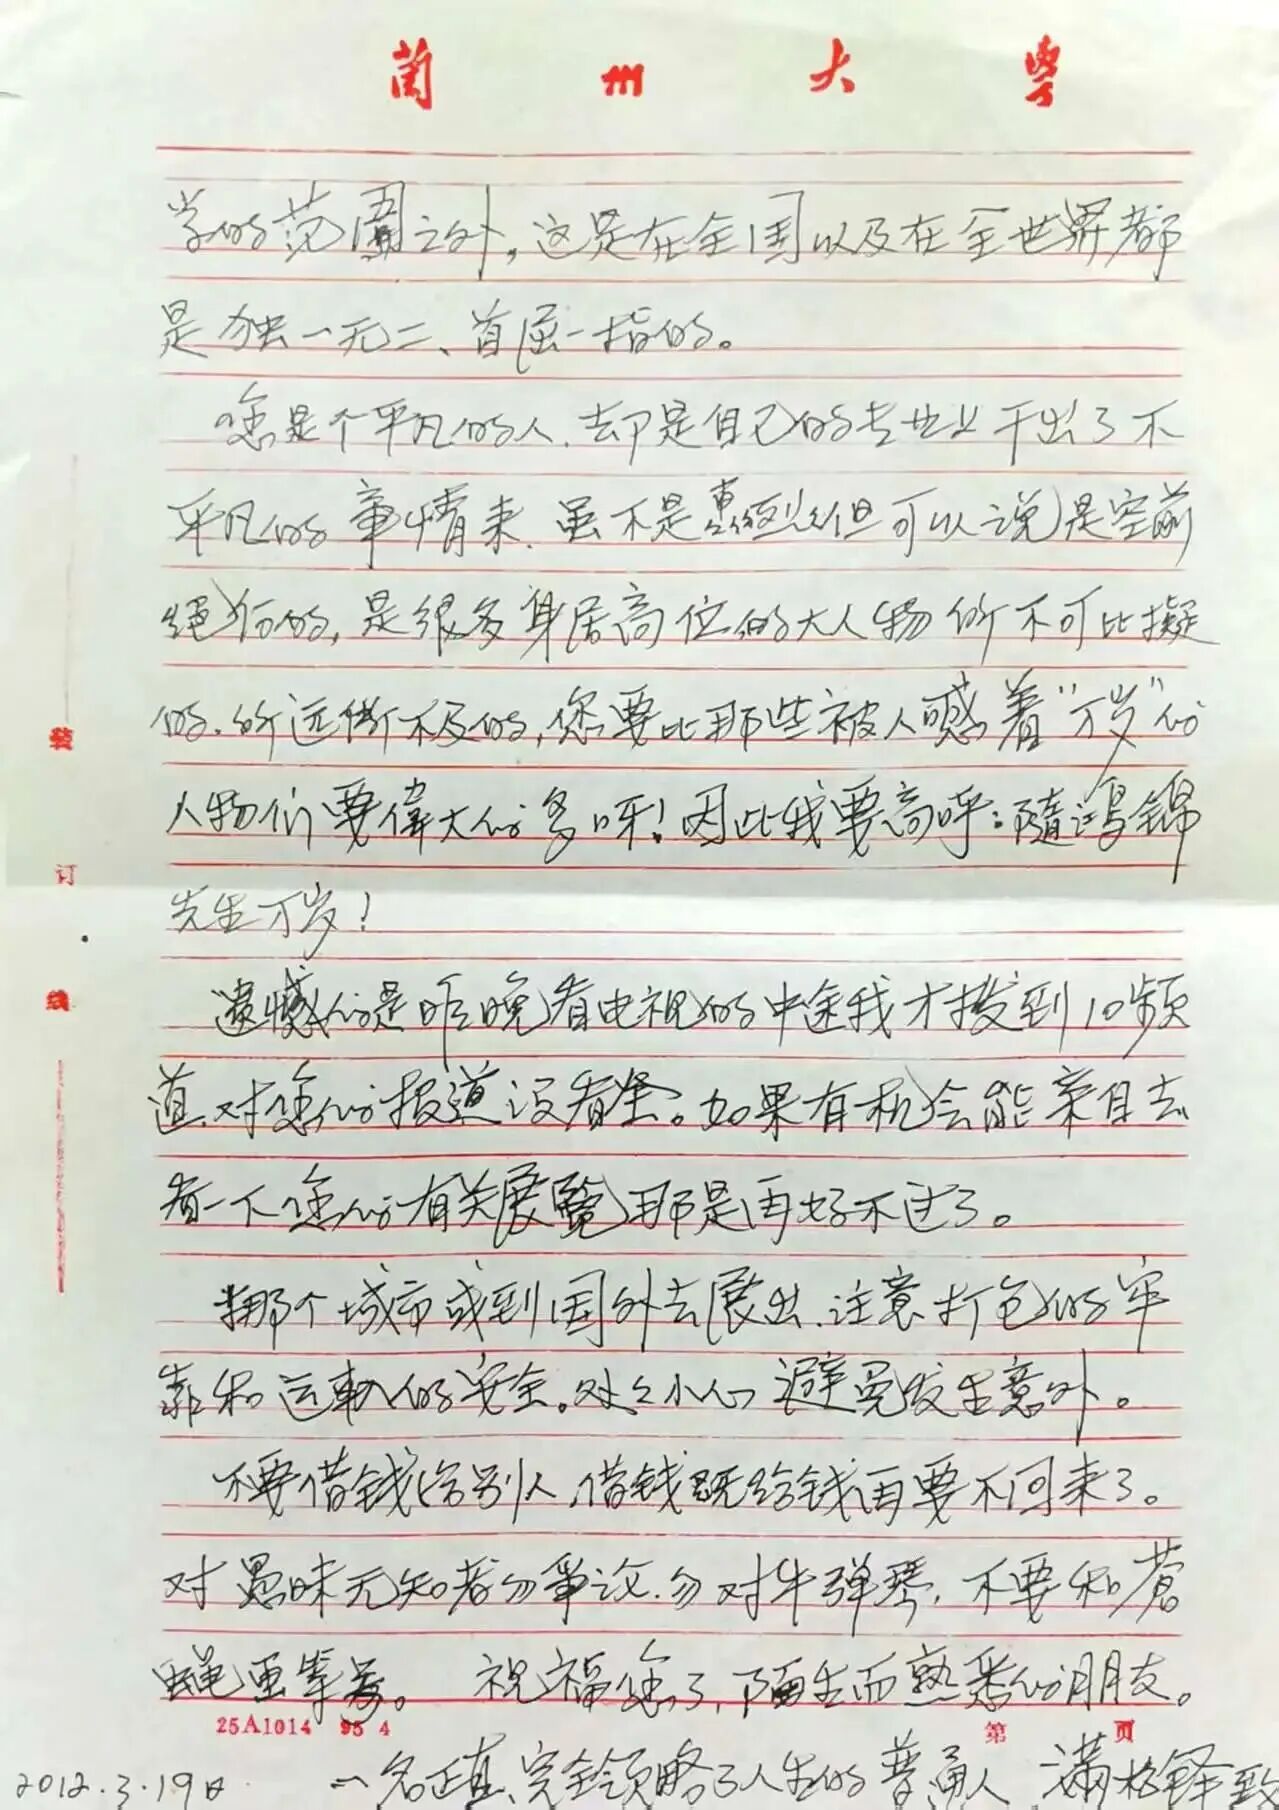 蘭州大學
学的范围之外，这是在全国以及在全世界都
是独一无二、首屈一指的。
您是个平凡的人，却是自己的专业业干出了不
平凡的事情来，虽不是轰烈但可以说是空前
绝后的，是很多身居高位的大人物所不可比擬
的，所远衢不及的，您要比那些被人喊着“万岁”的
人物们要偉大的多呀！因此我要高呼：隨鸿錦
先生万岁！
遗憾的是昨晚看电视的中途我才拨到10频
道，对您的报道没看全。如果有机会能亲自去
看一下您的有关展覽，那是再好不过了。
挪个城市或到国外去展出，注意打包的牢
靠和运輸的安全。处处小心，避免发生意外。
不要借钱给别人，借钱既给钱再要不回来了。
对愚昧无知者勿争议，勿对牛弹琴，不要和蒼
蝇画等号。 祝福您了，陌生而熟悉的朋友。
装
订
线
25A1014 95 4
第 页
一名正直、完全领略了人生的普通人 满 铎致
2012.3.19日